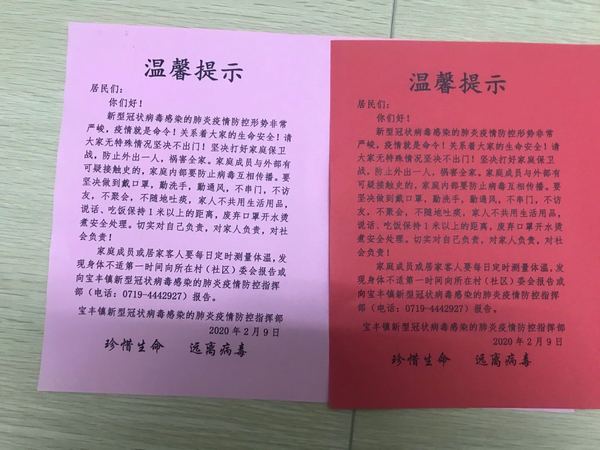 温馨提示
居民们：
你们好！
新型冠状病毒感染的肺炎疫情防控形势非常
严峻，疫情就是命令！关系着大家的生命安全！请
大家无特殊情况坚决不出门！坚决打好家庭保卫
战，防止外出一人，祸害全家。家庭成员与外部有
可疑接触史的，家庭内部要防止病毒互相传播。要
坚决做到戴口罩，勤洗手，勤通风，不串门，不访
友，不聚会，不随地吐痰，家人不共用生活用品，
说话、吃饭保持1米以上的距离，废弃口罩开水烫
煮安全处理。切实对自己负责，对家人负责，对社
会负责！
家庭成员或居家客人要每日定时测量体温，发
现身体不适第一时间向所在村（社区）委会报告或
向宝丰镇新型冠状病毒感染的肺炎疫情防控指挥
部（电话：0719-4442927）报告。
宝丰镇新型冠状病毒感染的肺炎疫情防控指挥部
2020年2月9日
珍惜生命 远离病毒
温馨提示
居民们：
你们好！
新型冠状病毒感染的肺炎疫情防控形势非常
严峻，疫情就是命令！关系着大家的生命安全！请
大家无特殊情况坚决不出门！坚决打好家庭保卫
战，防止外出一人，祸害全家。家庭成员与外部有
可疑接触史的，家庭内部要防止病毒互相传播。要
坚决做到戴口罩，勤洗手，勤通风，不串门，不访
友，不聚会，不随地吐痰，家人不共用生活用品，
说话、吃饭保持1米以上的距离，废弃口罩开水烫
煮安全处理。切实对自己负责，对家人负责，对社
会负责！
家庭成员或居家客人要每日定时测量体温，发
现身体不适第一时间向所在村（社区）委会报告或
向宝丰镇新型冠状病毒感染的肺炎疫情防控指挥
部（电话：0719-4442927）报告。
宝丰镇新型冠状病毒感染的肺炎疫情防控指挥部
2020年2月9日
珍惜生命 远离病毒